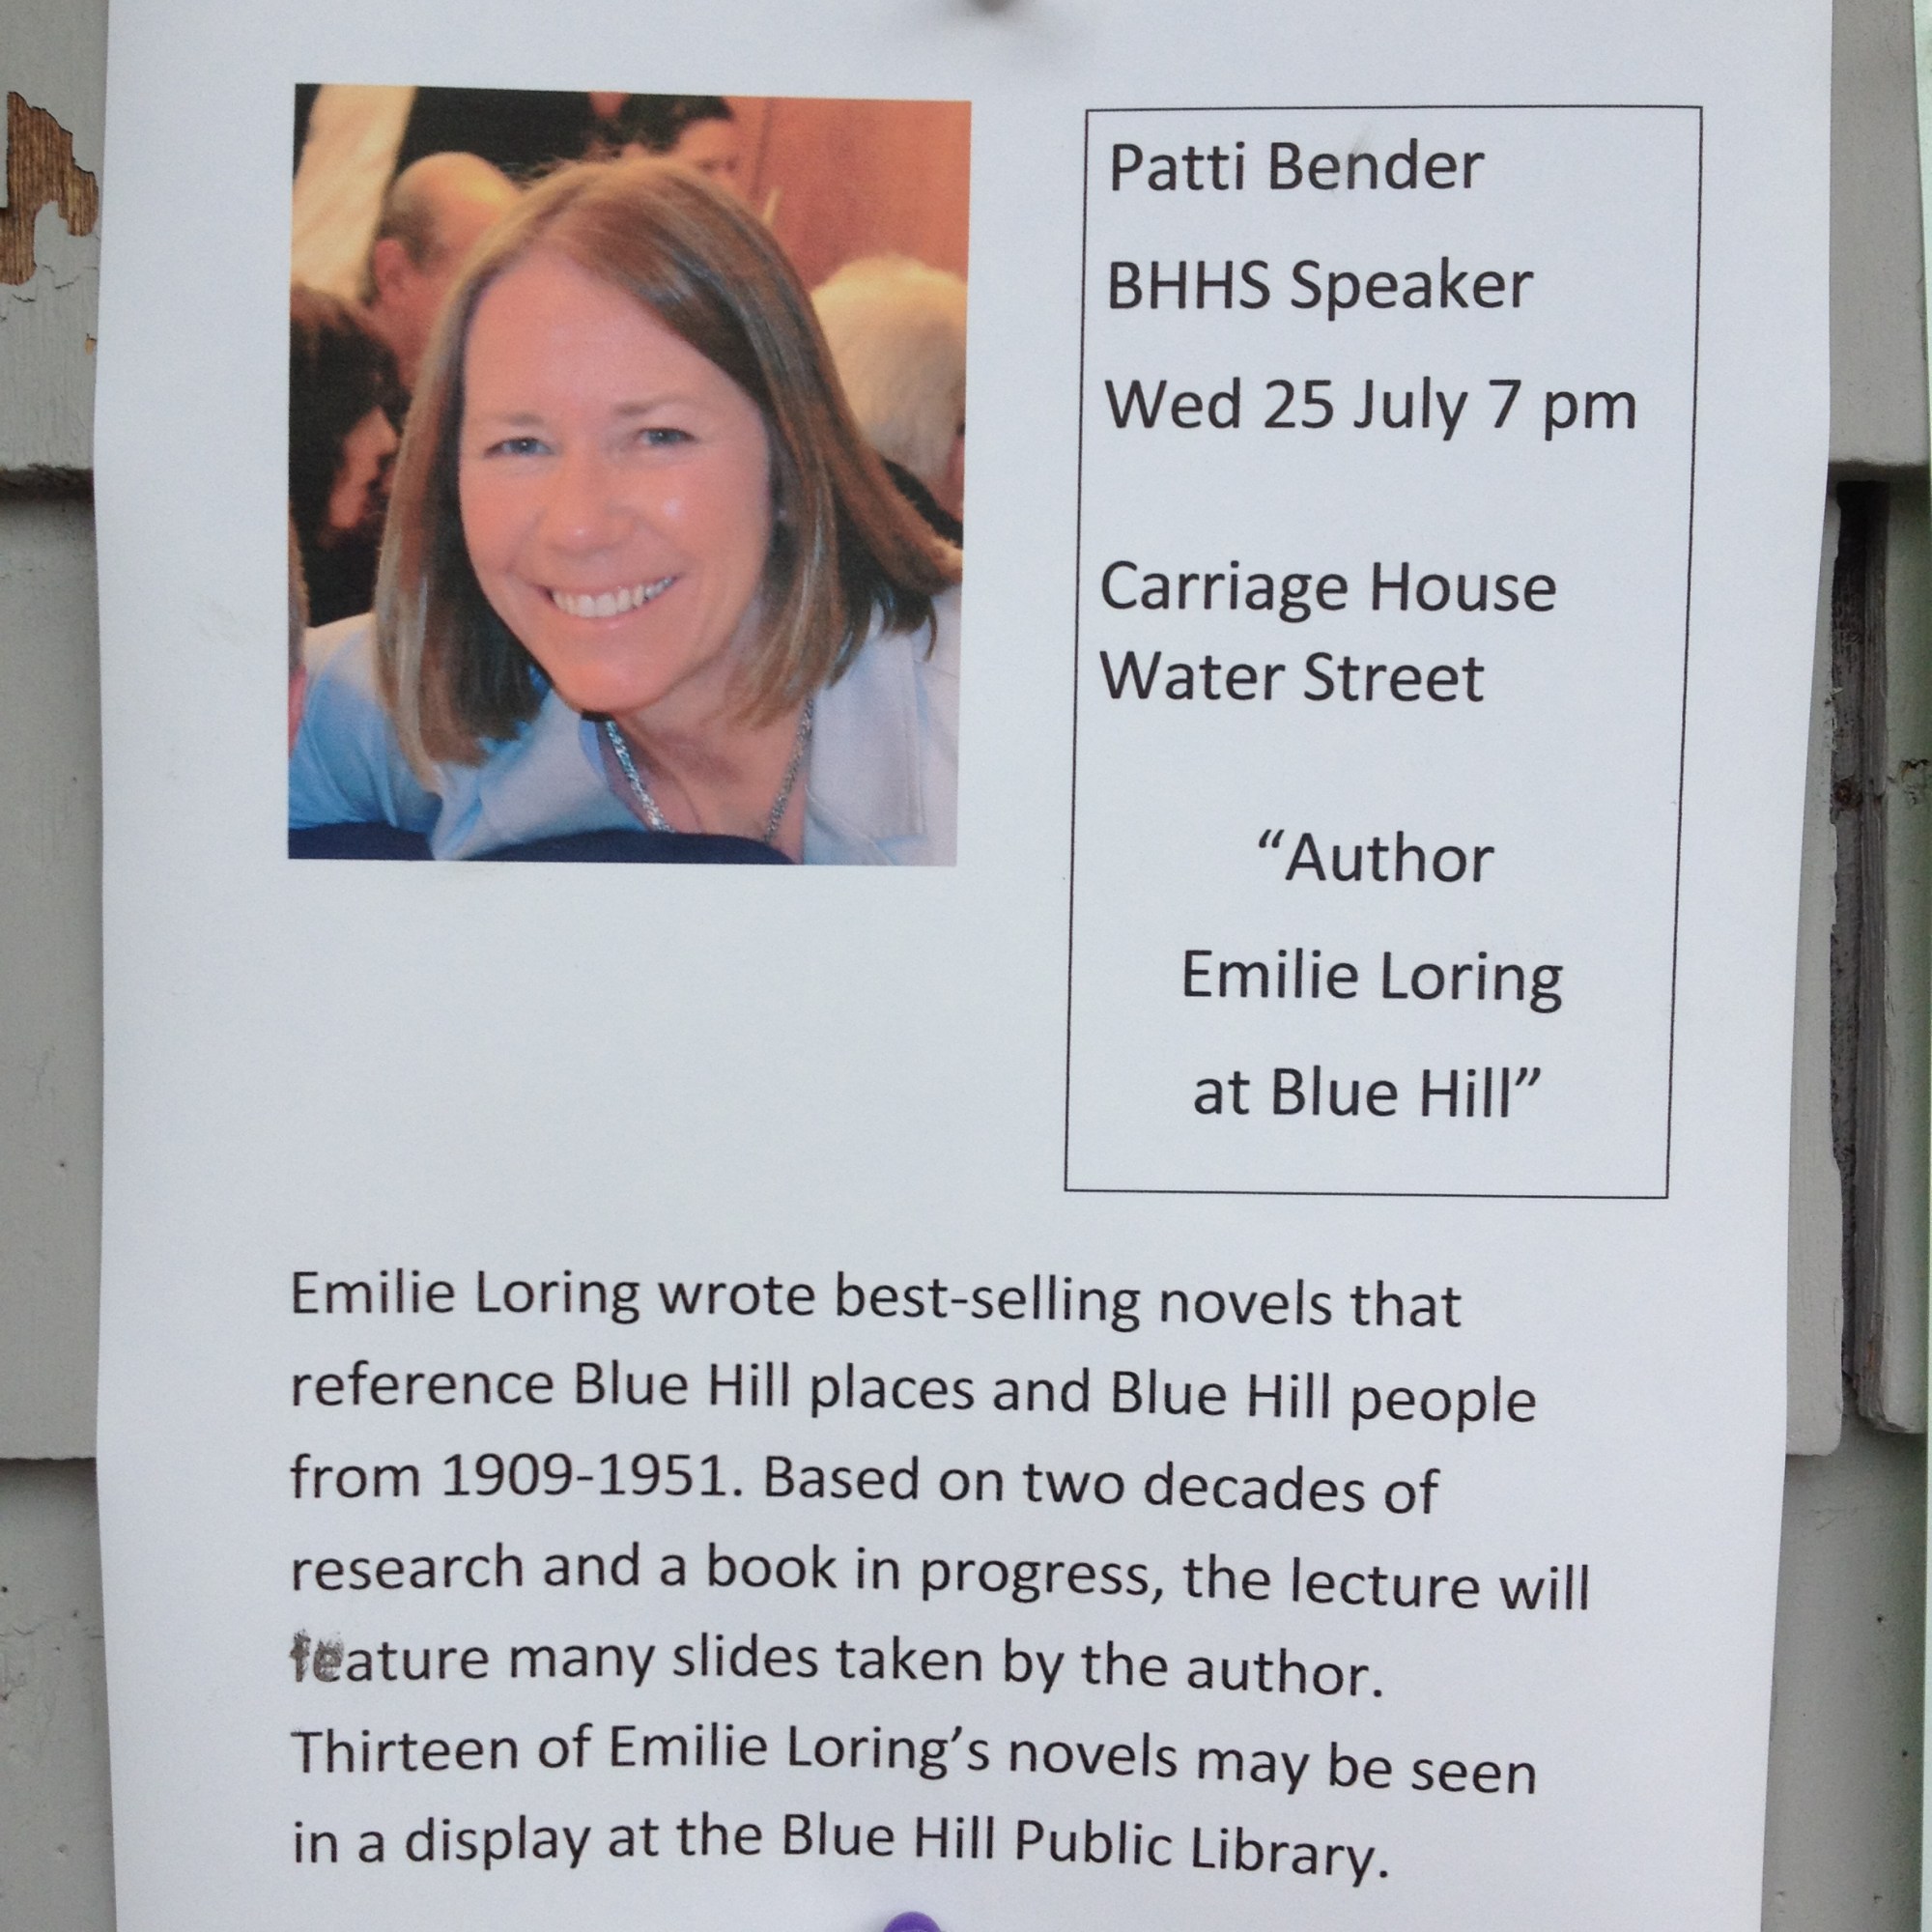 Patti Bender
BHHS Speaker
Wed 25 July 7 pm
Carriage House
Water Street
“Author
Emilie Loring
at Blue Hill”
Emilie Loring wrote best-selling novels that
reference Blue Hill places and Blue Hill people
from 1909-1951. Based on two decades of
research and a book in progress, the lecture will
feature many slides taken by the author.
Thirteen of Emilie Loring’s novels may be seen
in a display at the Blue Hill Public Library.